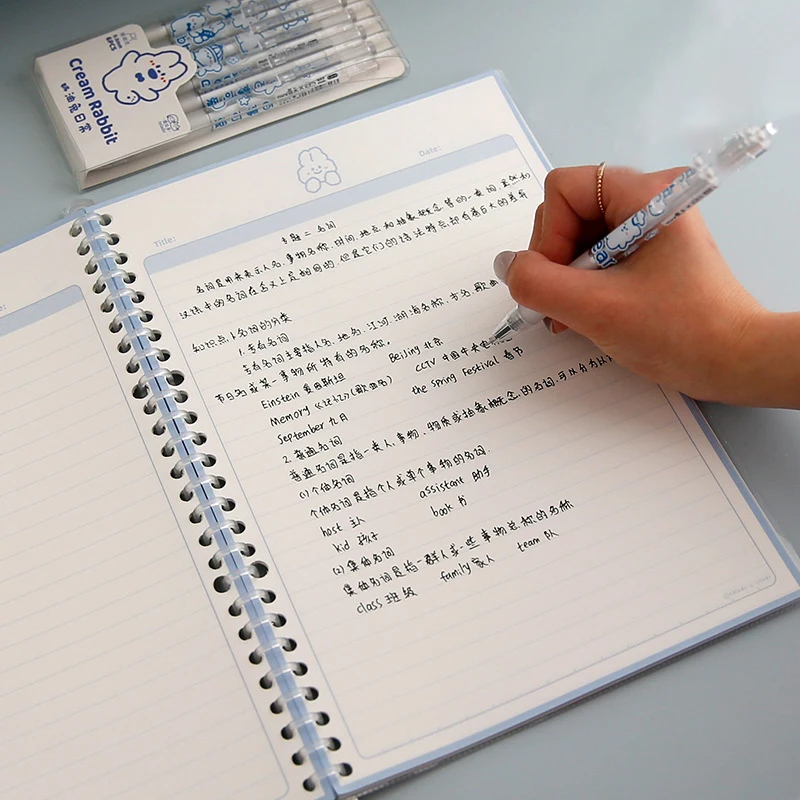 Cream Rabbit
奶油兔日常
6PCS
Title:
Date:
专题二 名词
名词是用来表示人名、事物名称、时间、地点和抽象概念等的一类词，虽然和
汉语中的名词在含义上是相同的，但是它们的语法特点却有着巨大的差异
知识点1 名词的分类
1. 专有名词
专有名词主要指人名、地名、江河、湖海名称、方名、歌曲
节日名或某一事物所特有的名称。
Einstein 爱因斯坦 Beijing 北京
Memory《记忆》(歌曲名) CCTV 中国中央电
September 九月 the Spring Festival 春节
2. 普通名词
普通名词是指一类人、事物、物质或抽象概念的名词，可以分为以
(1) 个体名词
个体名词是指个人或单个事物的名词。
host 主人 assistant 助手
kid 孩子 book 书
(2) 集体名词
集体名词是指一群人或一些事物总称的名称
class 班级 family 家人 team 队